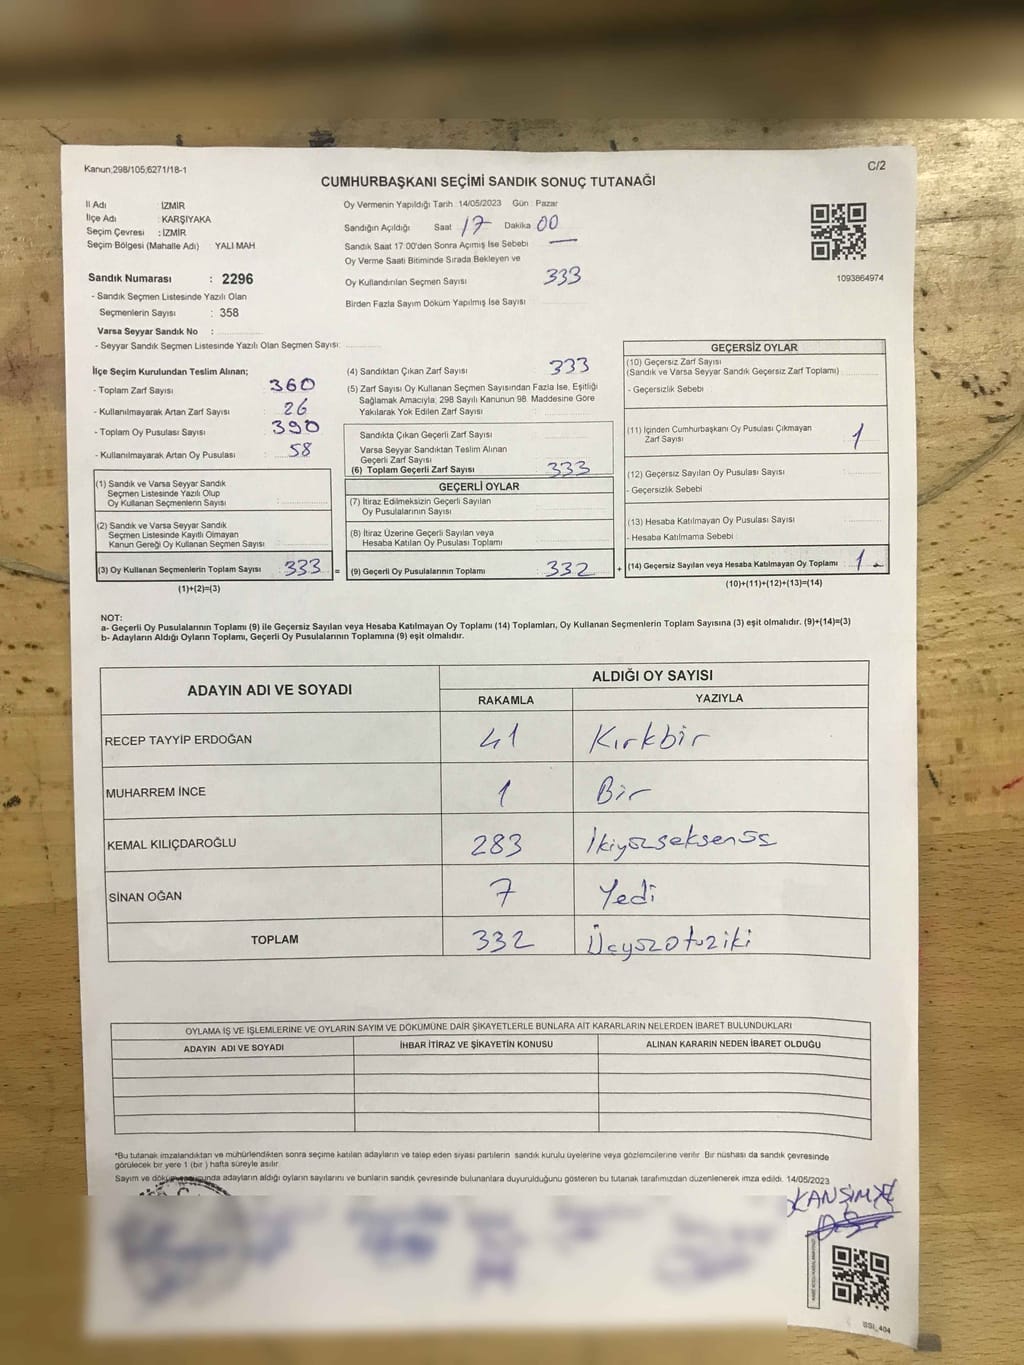 Kanun:298/105;6271/18-1
C/2
CUMHURBAŞKANI SEÇİMİ SANDIK SONUÇ TUTANAĞI
İl Adı : İZMİR
İlçe Adı : KARŞIYAKA
Seçim Çevresi : İZMİR
Seçim Bölgesi (Mahalle Adı) YALI MAH
Oy Vermenin Yapıldığı Tarih : 14/05/2023 Gün : Pazar
Sandığın Açıldığı Saat 17 Dakika 00
Sandık Saat 17:00'den Sonra Açımış İse Sebebi —
Oy Verme Saati Bitiminde Sırada Bekleyen ve
Oy Kullandırılan Seçmen Sayısı 333
Birden Fazla Sayım Döküm Yapılmış İse Sayısı
1093864974
Sandık Numarası : 2296
- Sandık Seçmen Listesinde Yazılı Olan
Seçmenlerin Sayısı : 358
Varsa Seyyar Sandık No :
- Seyyar Sandık Seçmen Listesinde Yazılı Olan Seçmen Sayısı:
İlçe Seçim Kurulundan Teslim Alınan;
- Toplam Zarf Sayısı : 360
- Kullanılmayarak Artan Zarf Sayısı : 26
- Toplam Oy Pusulası Sayısı : 390
- Kullanılmayarak Artan Oy Pusulası : 58
(1) Sandık ve Varsa Seyyar Sandık
Seçmen Listesinde Yazılı Olup
Oy Kullanan Seçmenlerin Sayısı :
(2) Sandık ve Varsa Seyyar Sandık
Seçmen Listesinde Kayıtlı Olmayan
Kanun Gereği Oy Kullanan Seçmen Sayısı :
(3) Oy Kullanan Seçmenlerin Toplam Sayısı : 333 =
(1)+(2)=(3)
(4) Sandıktan Çıkan Zarf Sayısı 333
(5) Zarf Sayısı Oy Kullanan Seçmen Sayısından Fazla İse, Eşitliği
Sağlamak Amacıyla, 298 Sayılı Kanunun 98. Maddesine Göre
Yakılarak Yok Edilen Zarf Sayısı
Sandıkta Çıkan Geçerli Zarf Sayısı
Varsa Seyyar Sandıktan Teslim Alınan
Geçerli Zarf Sayısı
(6) Toplam Geçerli Zarf Sayısı 333
GEÇERLİ OYLAR
(7) İtiraz Edilmeksizin Geçerli Sayılan
Oy Pusulalarının Sayısı
(8) İtiraz Üzerine Geçerli Sayılan veya
Hesaba Katılan Oy Pusulası Toplamı
(9) Geçerli Oy Pusulalarının Toplamı 332 +
GEÇERSİZ OYLAR
(10) Geçersiz Zarf Sayısı
(Sandık ve Varsa Seyyar Sandık Geçersiz Zarf Toplamı)
- Geçersizlik Sebebi
(11) İçinden Cumhurbaşkanı Oy Pusulası Çıkmayan
Zarf Sayısı 1
(12) Geçersiz Sayılan Oy Pusulası Sayısı
- Geçersizlik Sebebi
(13) Hesaba Katılmayan Oy Pusulası Sayısı
- Hesaba Katılmama Sebebi
(14) Geçersiz Sayılan veya Hesaba Katılmayan Oy Toplamı : 1 -
(10)+(11)+(12)+(13)=(14)
NOT:
a- Geçerli Oy Pusulalarının Toplamı (9) ile Geçersiz Sayılan veya Hesaba Katılmayan Oy Toplamı (14) Toplamları, Oy Kullanan Seçmenlerin Toplam Sayısına (3) eşit olmalıdır. (9)+(14)=(3)
b- Adayların Aldığı Oyların Toplamı, Geçerli Oy Pusulalarının Toplamına (9) eşit olmalıdır.
ADAYIN ADI VE SOYADI
ALDIĞI OY SAYISI
RAKAMLA YAZIYLA
RECEP TAYYİP ERDOĞAN 41 Kırkbir
MUHARREM İNCE 1 Bir
KEMAL KILIÇDAROĞLU 283 İkiyüzseksenüç
SİNAN OĞAN 7 Yedi
TOPLAM 332 Üçyüzotuziki
OYLAMA İŞ VE İŞLEMLERİNE VE OYLARIN SAYIM VE DÖKÜMÜNE DAİR ŞİKAYETLERLE BUNLARA AİT KARARLARIN NELERDEN İBARET BULUNDUKLARI
ADAYIN ADI VE SOYADI İHBAR İTİRAZ VE ŞİKAYETİN KONUSU ALINAN KARARIN NEDEN İBARET OLDUĞU
*Bu tutanak imzalandıktan ve mühürlendikten sonra seçime katılan adayların ve talep eden siyasi partilerin sandık kurulu üyelerine veya gözlemcilerine verilir. Bir nüshası da sandık çevresinde
görülecek bir yere 1 (bir ) hafta süreyle asılır.
Sayım ve döküm adayların aldığı oyların sayılarını ve bunların sandık çevresinde bulunanlara duyurulduğunu gösteren bu tutanak tarafımızdan düzenlenerek imza edildi. 14/05/2023
SSI_404